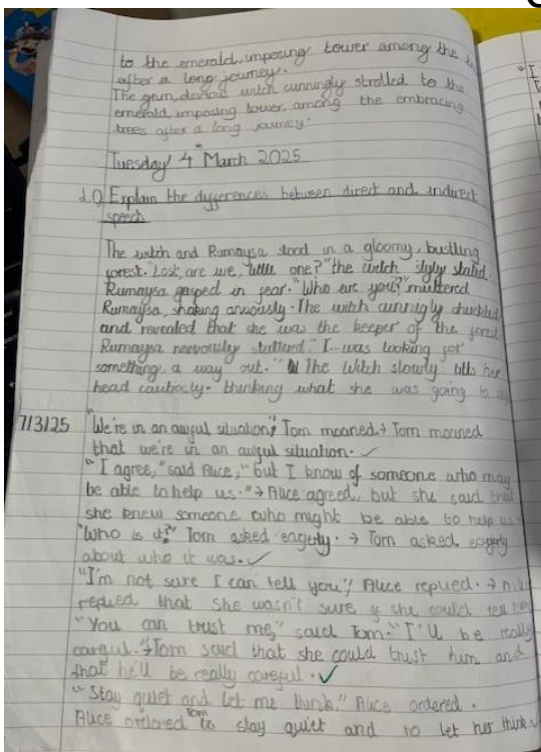 to the emerald, imposing tower among the
after a long journey.
The grim, devious witch cunningly strolled to the
emerald, imposing tower, among the embracing
trees after a long journey.
Tuesday 4th March 2025
LO Explain the differences between direct and indirect
speech
The witch and Rumaysa stood in a gloomy, bustling
forest. "Lost, are we, little one?" the witch slyly stated.
Rumaysa gasped in fear. "Who are you?" muttered
Rumaysa, shaking anxiously. The witch cunnigly chuckled
and revealed that she was the keeper of the forest
Rumaysa nervously stuttered "I... was looking for
something, a way out." The Witch slowly tilts her
head cautiosly - thinking what she was going to say
7/3/25 "We're in an awful situation," Tom moaned. → Tom moaned
that we're in an awful situation. ✓
"I agree," said Alice, "but I know of someone who may
be able to help us." → Alice agreed, but she said that
she knew someone who might be able to help us.
"Who is it?" Tom asked eagerly. → Tom asked eagerly
about who it was. ✓
"I'm not sure I can tell you," Alice replied. → Alice
replied that she wasn't sure if she could tell him
"You can trust me," said Tom. "I'll be really
careful." → Tom said that she could trust him and
that he'll be really careful. ✓
"Stay quiet and let me think." Alice ordered.
Alice ordered Tom to stay quiet and to let her think.